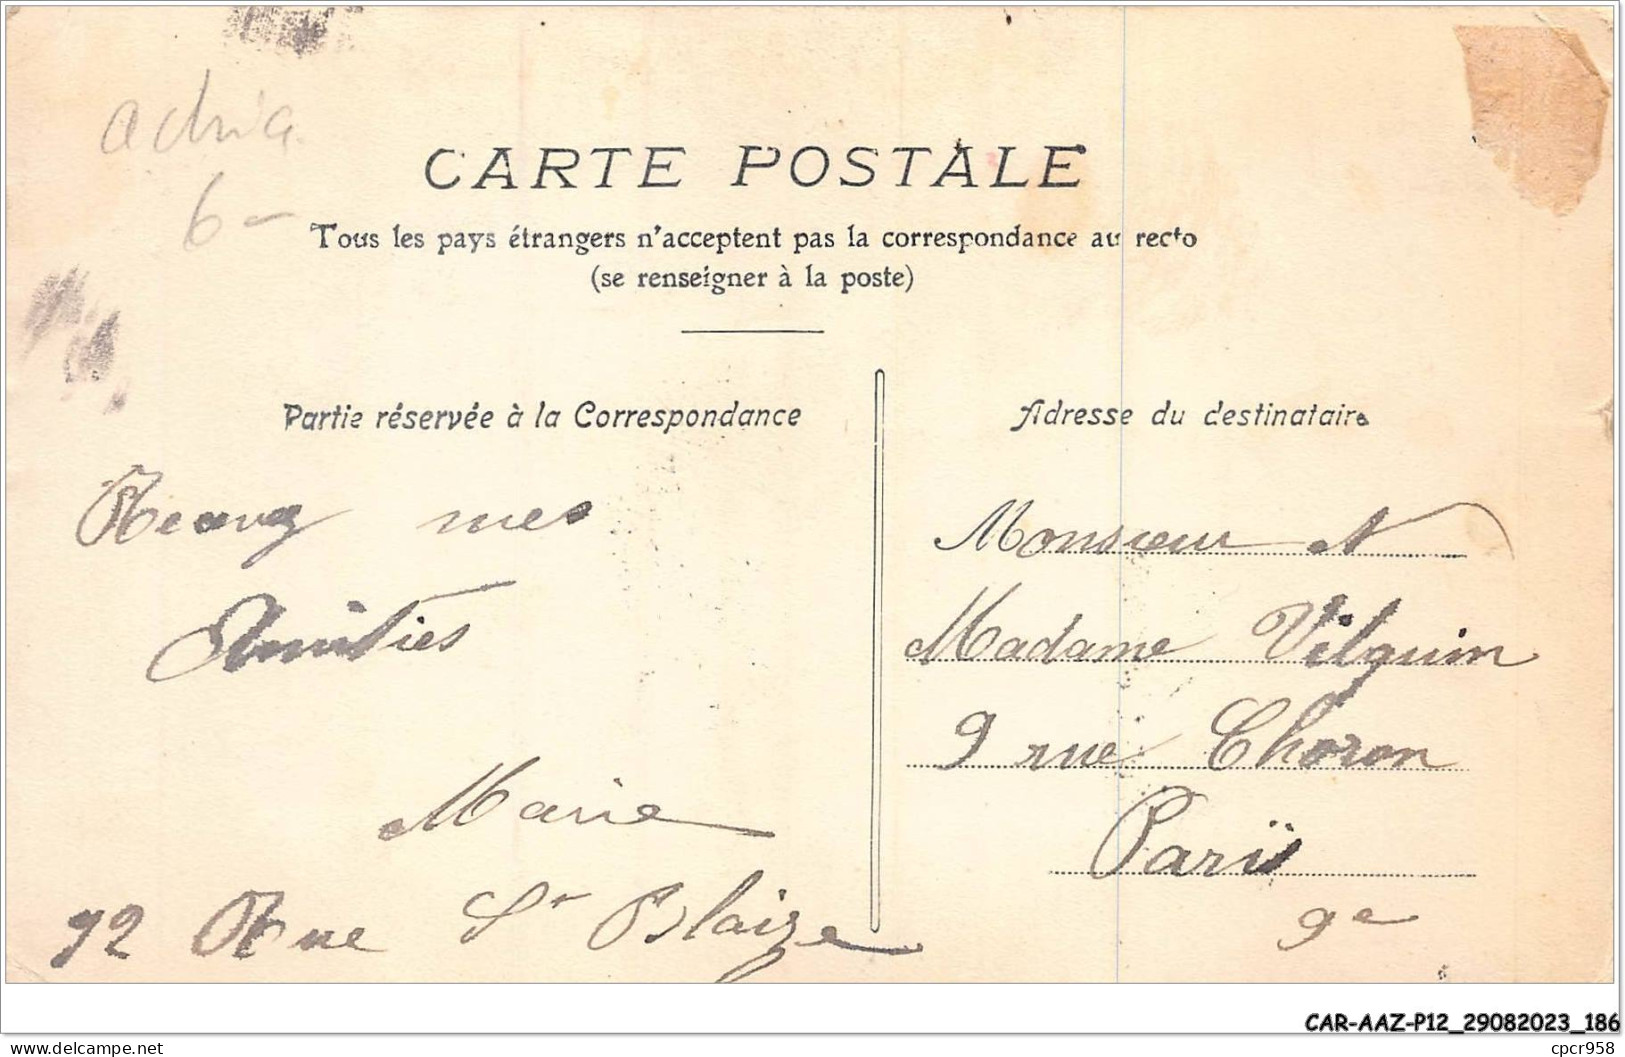 adria
6-
CARTE POSTALE
Tous les pays étrangers n'acceptent pas la correspondance au recto
(se renseigner à la poste)
Partie réservée à la Correspondance
Adresse du destinataire
mes
Amitiés
Marie
92 Rue St Blaize
Monsieur et
Madame Vilquin
9 rue Choron
Paris
9e
CAR-AAZ-P12_29082023_186
www.delcampe.net
cpcr958